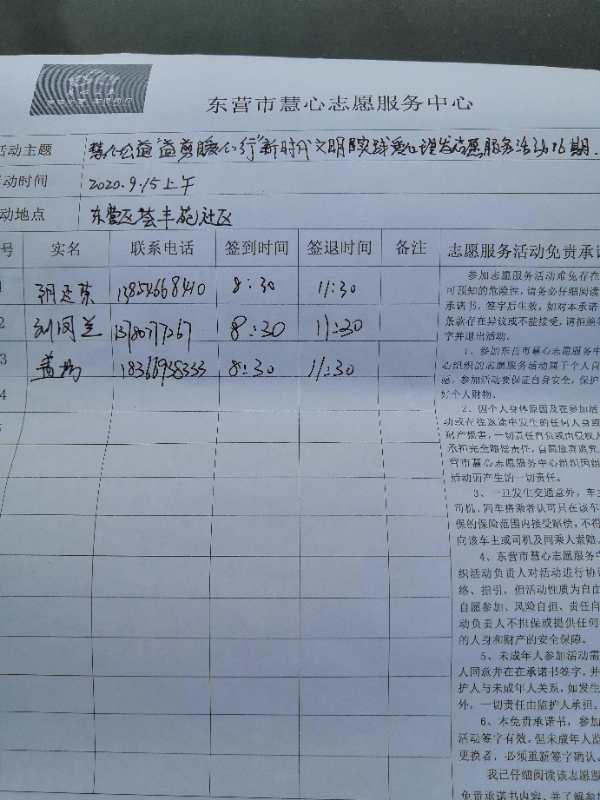 东营市慧心志愿服务中心
活动主题 慧心公益"益剪暖心行"新时代文明实践爱心理发志愿服务活动16期.
活动时间 2020.9.15上午
动地点 东营区荟丰苑社区
号 实名 联系电话 签到时间 签退时间 备注 志愿服务活动免责承诺
1 13854668410 8:30 11:30
2 刘凤兰 8:30 11:30
3 盖 18366938333 8:30 11:30
4
参加志愿服务活动难免存在
可预知的危险性，请务必仔细阅读
承诺书，签字后生效，如对本承诺
条款存在异议或不能接受，请拒绝
字并退出活动。
1、参加东营市慧心志愿服务中
心组织的志愿服务活动属于个人自
愿，参加活动要保证自身安全，保护
好个人财物。
2、因个人身体原因及在参加活
动或在往返途中发生的任何人身或
财产损害，一切责任自负
营市慧心志愿服务中心组织
活动所产生的一切责任。
3、一旦发生交通意外，车主
司机、同车搭乘者认可只在该车
保的保险范围内接受赔偿，不得
向该车主或司机及同乘人索赔。
4、东营市慧心志愿服务中
织活动负责人对活动进行协
络、指引，但活动性质为自由
自愿参加、风险自担、责任自
动负责人不担保或提供任何
的人身和财产的安全保障。
5、未成年人参加活动需
人同意并在在承诺书签字，并
护人与未成年人关系，如发生
外，一切责任由监护人承担。
6、本免责承诺书，参加
活动签字有效，但未成年人监
更换者，必须重新签字确认。
我已仔细阅读该志愿服
免责承诺书内容，并了解参加